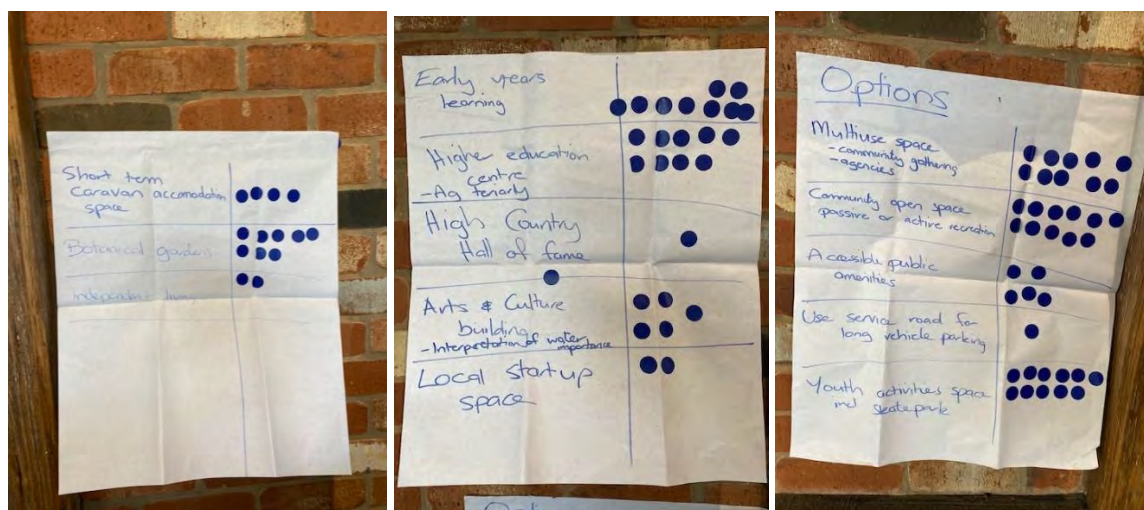 Short term
Caravan accomodation
space
Botanical gardens
Independent living
Early years
learning
Higher education
centre
-Ag teriarly
High Country
Hall of fame
Arts & Culture
building
-Interpretation of water
importance
Local startup
space
Options
Multiuse space
-community gathering
-agencies
Community open space
passive or active recreation
Accessible public
amenities
Use service road for
long vehicle parking
Youth activities space
incl skatepark